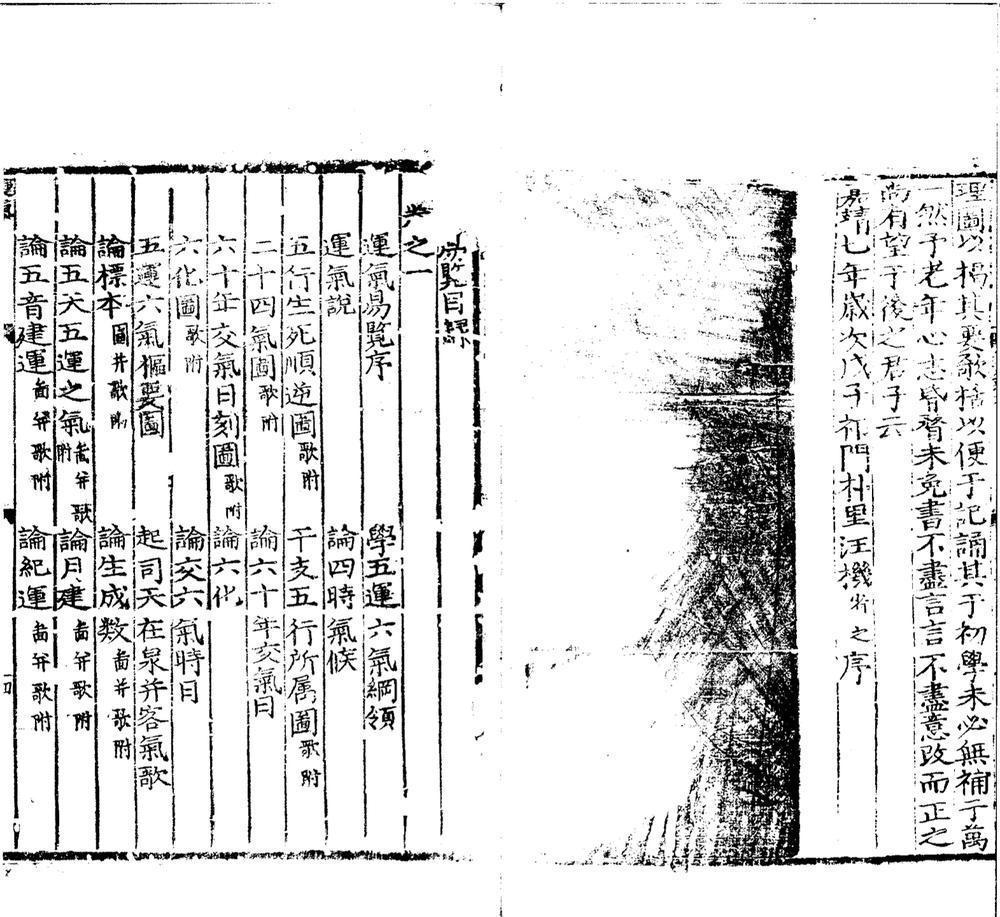 理圖以揭其要歌括以便于記誦其于初學未必無補于萬
一然予老年心志昏瞀未免書不盡言言不盡意改而正之
尚有望于後之君子云
嘉靖七年歲次戊子祁門朴里汪機省之序
易覽目録
卷之一
運氣易覽序 學五運六氣綱領
運氣說 論四時氣候
五行生死順逆圖歌附 干支五行所属圖歌附
二十四氣圖歌附 論六十年交氣日
六十年交氣日刻圖歌附 論六化
六化圖歌附 論交六氣時日
五運六氣樞要圖 起司天在泉并客氣歌
論標本圖并歌附 論生成数啚并歌附
論五天五運之氣啚并歌附 論月建啚并歌附
論五音建運啚并歌附 論紀運啚并歌附